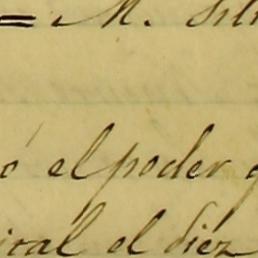 = M. Sil
ó el poder q
ical el diez